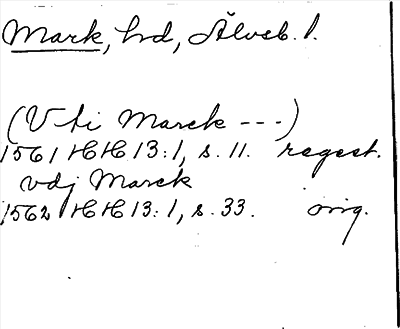 Mark, hd, Älvsb. l.
(Vti Marck ---)
1561 HH 13:1, s. 11. regest.
vdj Marck
1562 HH 13:1, s. 33. orig.